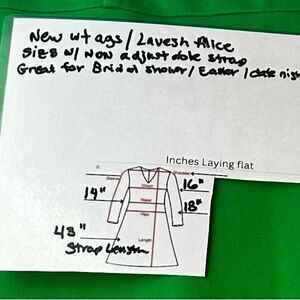 New wtags / Lavesh Alice
Size w/ Non adjustable strap
Great for Bridal shower / Easter / date nig
Inches Laying flat
Shoulder
Chest
16"
14"
Waist
18"
Hips
43"
Length
Strap Length